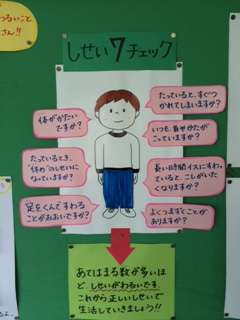 しせい7チェック
体がかたい
ですか?
たっていると、すぐつ
かれてしまいますか?
いつも、首やかたが
こっていますか?
たっているとき、
"休め"のしせいに
なっていますか?
長い時間イスにすわっ
ていると、こしがいた
くなりますか?
足をくんですわる
ことがおおいですか?
よくつまずくことが
ありますか?
あてはまる数が多いほ
ど、しせいがわるいです。
これから正しいしせいで
生活していきましょう!!